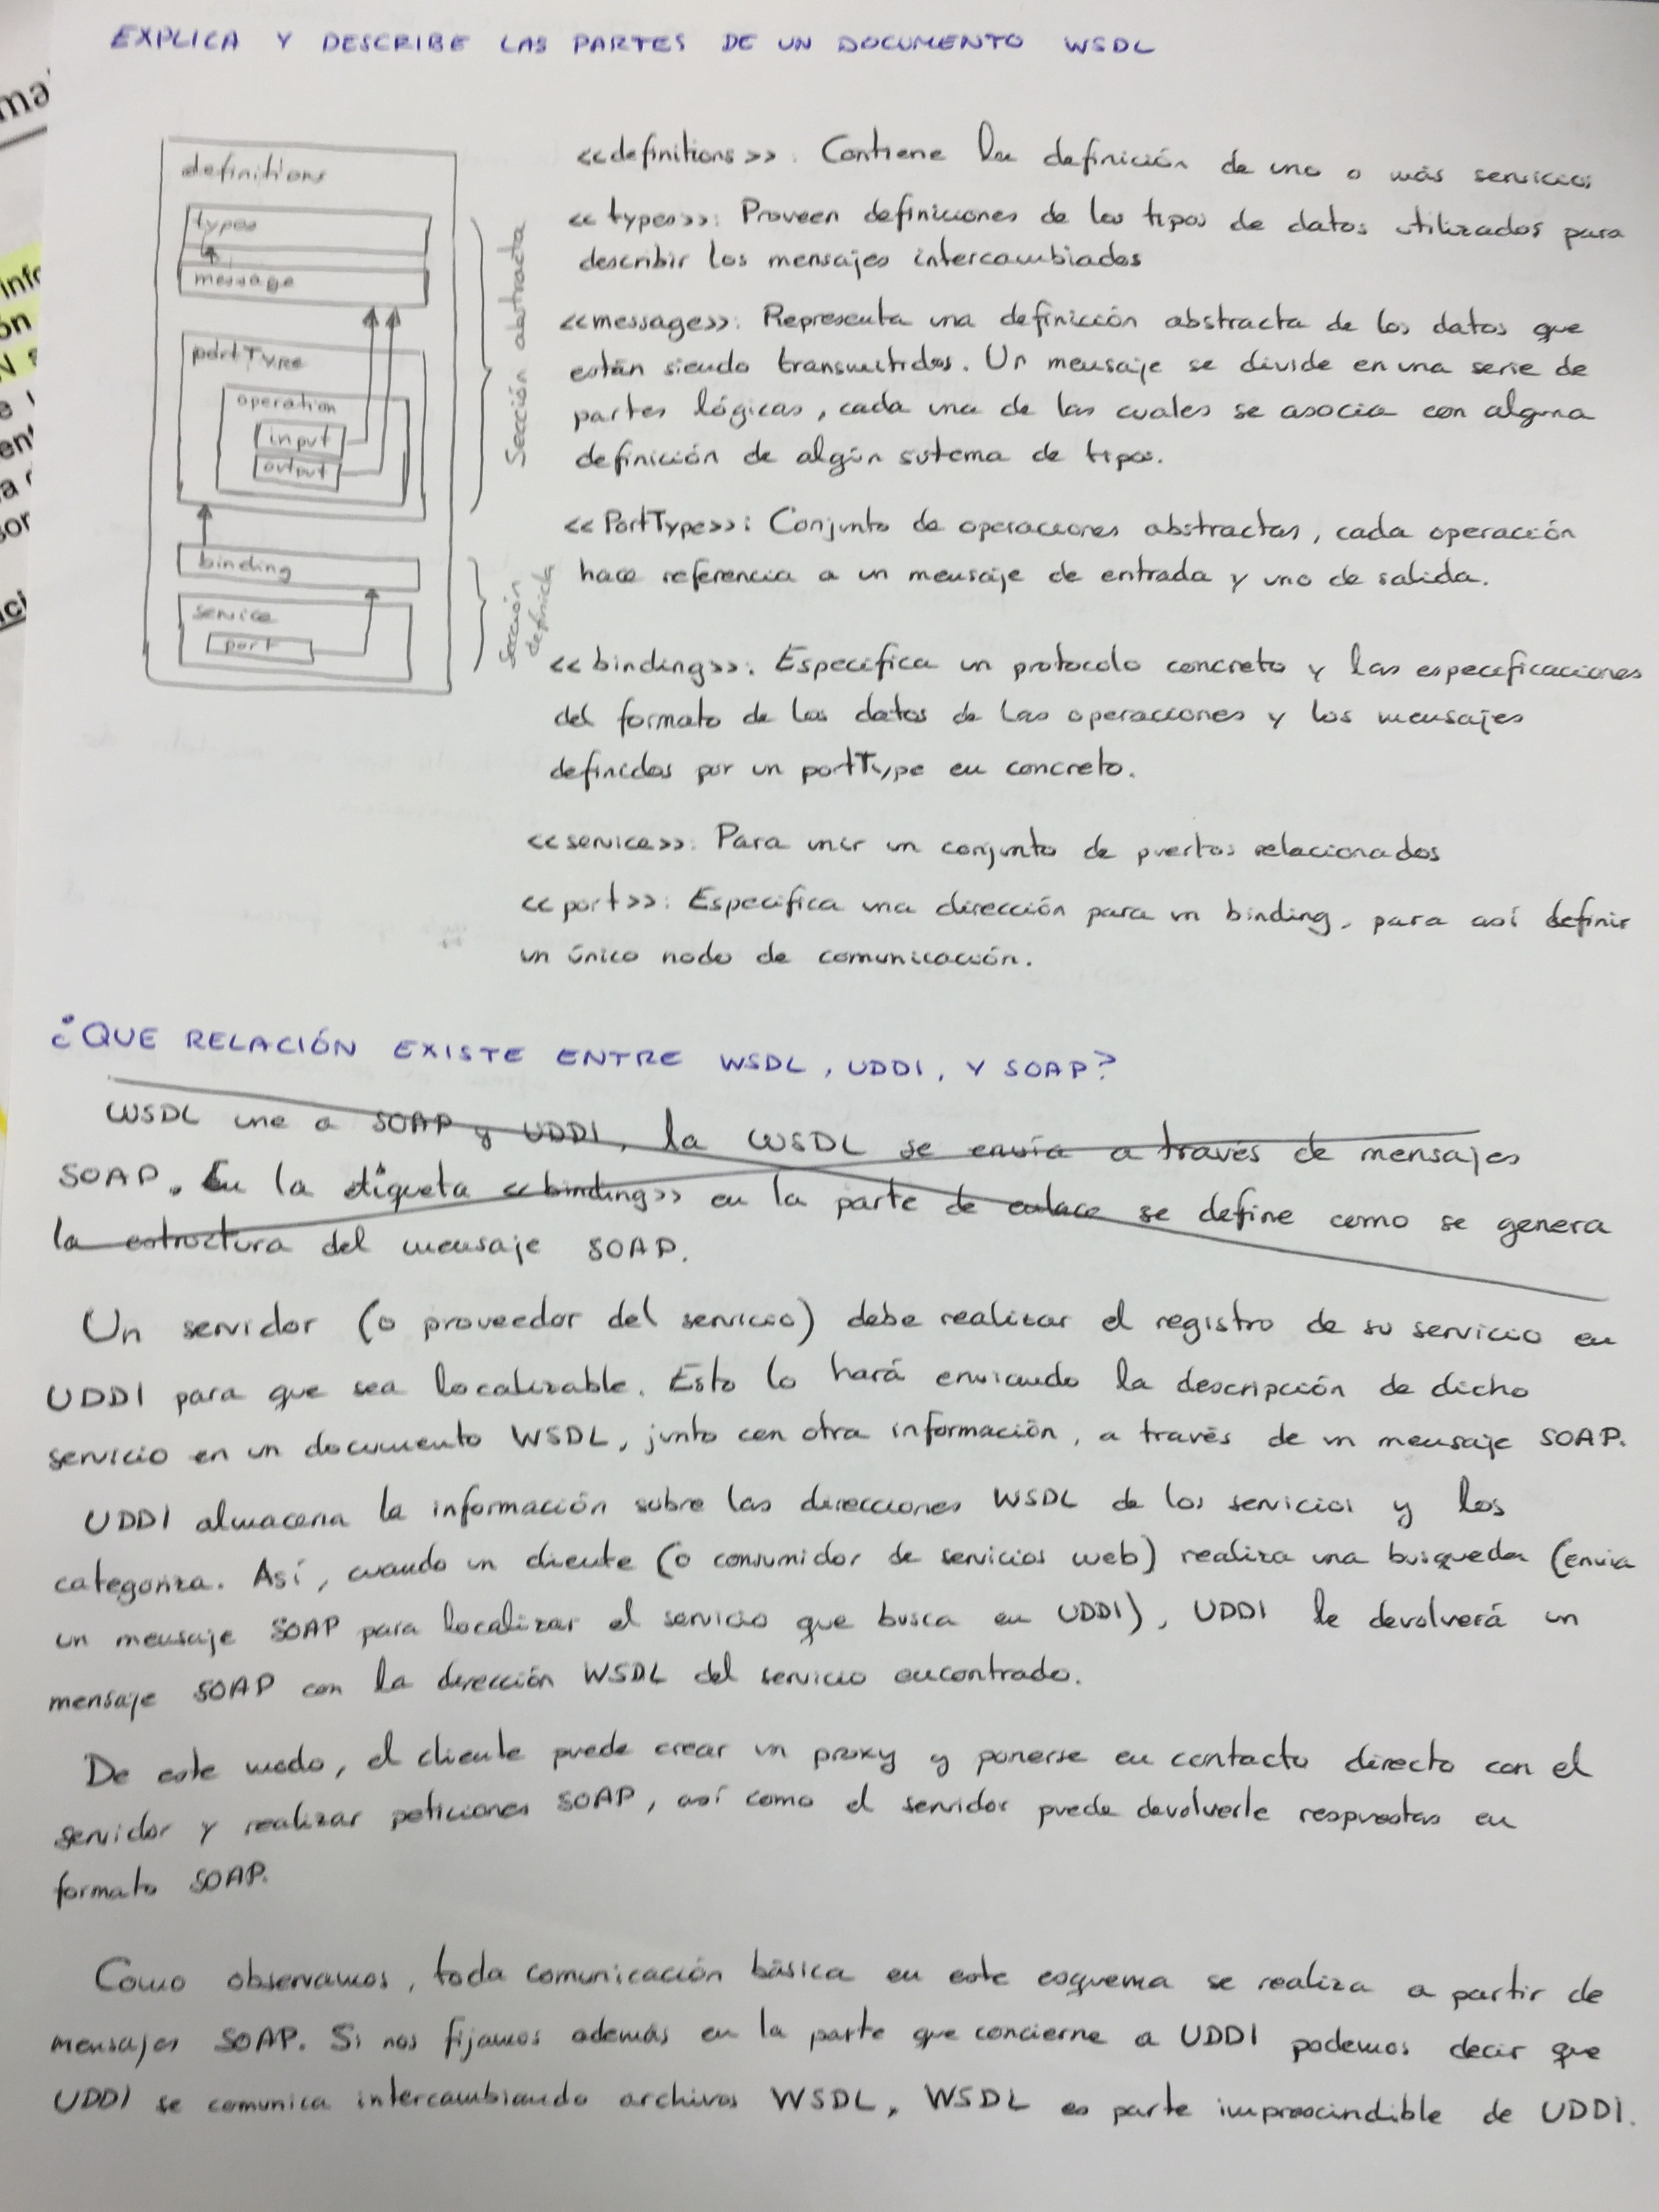 EXPLICA Y DESCRIBE LAS PARTES DE UN DOCUMENTO WSDL
ma
info
ón
N s
definitions
types
message
portType
operation
input
output
binding
service
port
Sección abstracta
Sección definida
<<definitions>>: Contiene la definición de uno o más servicios
<<types>>: Proveen definiciones de los tipos de datos utilizados para
describir los mensajes intercambiados
<<message>>: Representa una definición abstracta de los datos que
están siendo transmitidos. Un mensaje se divide en una serie de
partes lógicas, cada una de las cuales se asocia con alguna
definición de algún sistema de tipos.
<<PortType>>: Conjunto de operaciones abstractas, cada operación
hace referencia a un mensaje de entrada y uno de salida.
<<binding>>: Especifica un protocolo concreto y las especificaciones
del formato de los datos de las operaciones y los mensajes
definidos por un portType en concreto.
<<service>>: Para unir un conjunto de puertos relacionados
<<port>>: Especifica una dirección para un binding, para así definir
un único nodo de comunicación.
¿QUE RELACIÓN EXISTE ENTRE WSDL, UDDI, Y SOAP?
WSDL une a SOAP y UDDI, la WSDL se envía a través de mensajes
SOAP. En la etiqueta <<binding>> en la parte de enlace se define como se genera
la estructura del mensaje SOAP.
Un servidor (o proveedor del servicio) debe realizar el registro de su servicio en
UDDI para que sea localizable. Esto lo hará enviando la descripción de dicho
servicio en un documento WSDL, junto con otra información, a través de un mensaje SOAP.
UDDI almacena la información sobre las direcciones WSDL de los servicios y los
categoriza. Así, cuando un cliente (o consumidor de servicios web) realiza una búsqueda (envia
un mensaje SOAP para localizar el servicio que busca en UDDI), UDDI le devolverá un
mensaje SOAP con la dirección WSDL del servicio encontrado.
De este modo, el cliente puede crear un proxy y ponerse en contacto directo con el
servidor y realizar peticiones SOAP, así como el servidor puede devolverle respuestas en
formato SOAP.
Como observamos, toda comunicación básica en este esquema se realiza a partir de
mensajes SOAP. Si nos fijamos además en la parte que concierne a UDDI podemos decir que
UDDI se comunica intercambiando archivos WSDL, WSDL es parte imprescindible de UDDI.